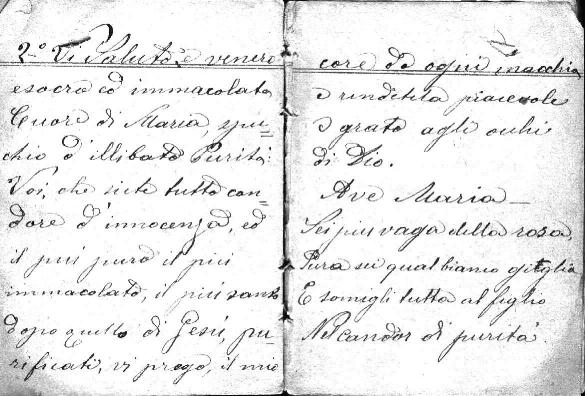 2º Vi Saluto, e venero
e sacro ed immacolato
Cuore di Maria, spec=
chio d'illibata Purità.
Voi, che siete tutto can=
dore d'innocenza, ed
il più puro il più
immacolato, il più santo
dopo quello di Gesù, pu=
rificati, vi prego, il mio
core da ogni macchia
e rendetela piacevole
e grato agli occhi
di Dio.
Ave Maria —
Sei più vaga della rosa,
Pura sei qual bianco giglio
E somigli tutta al figlio
Nel candor di purità.